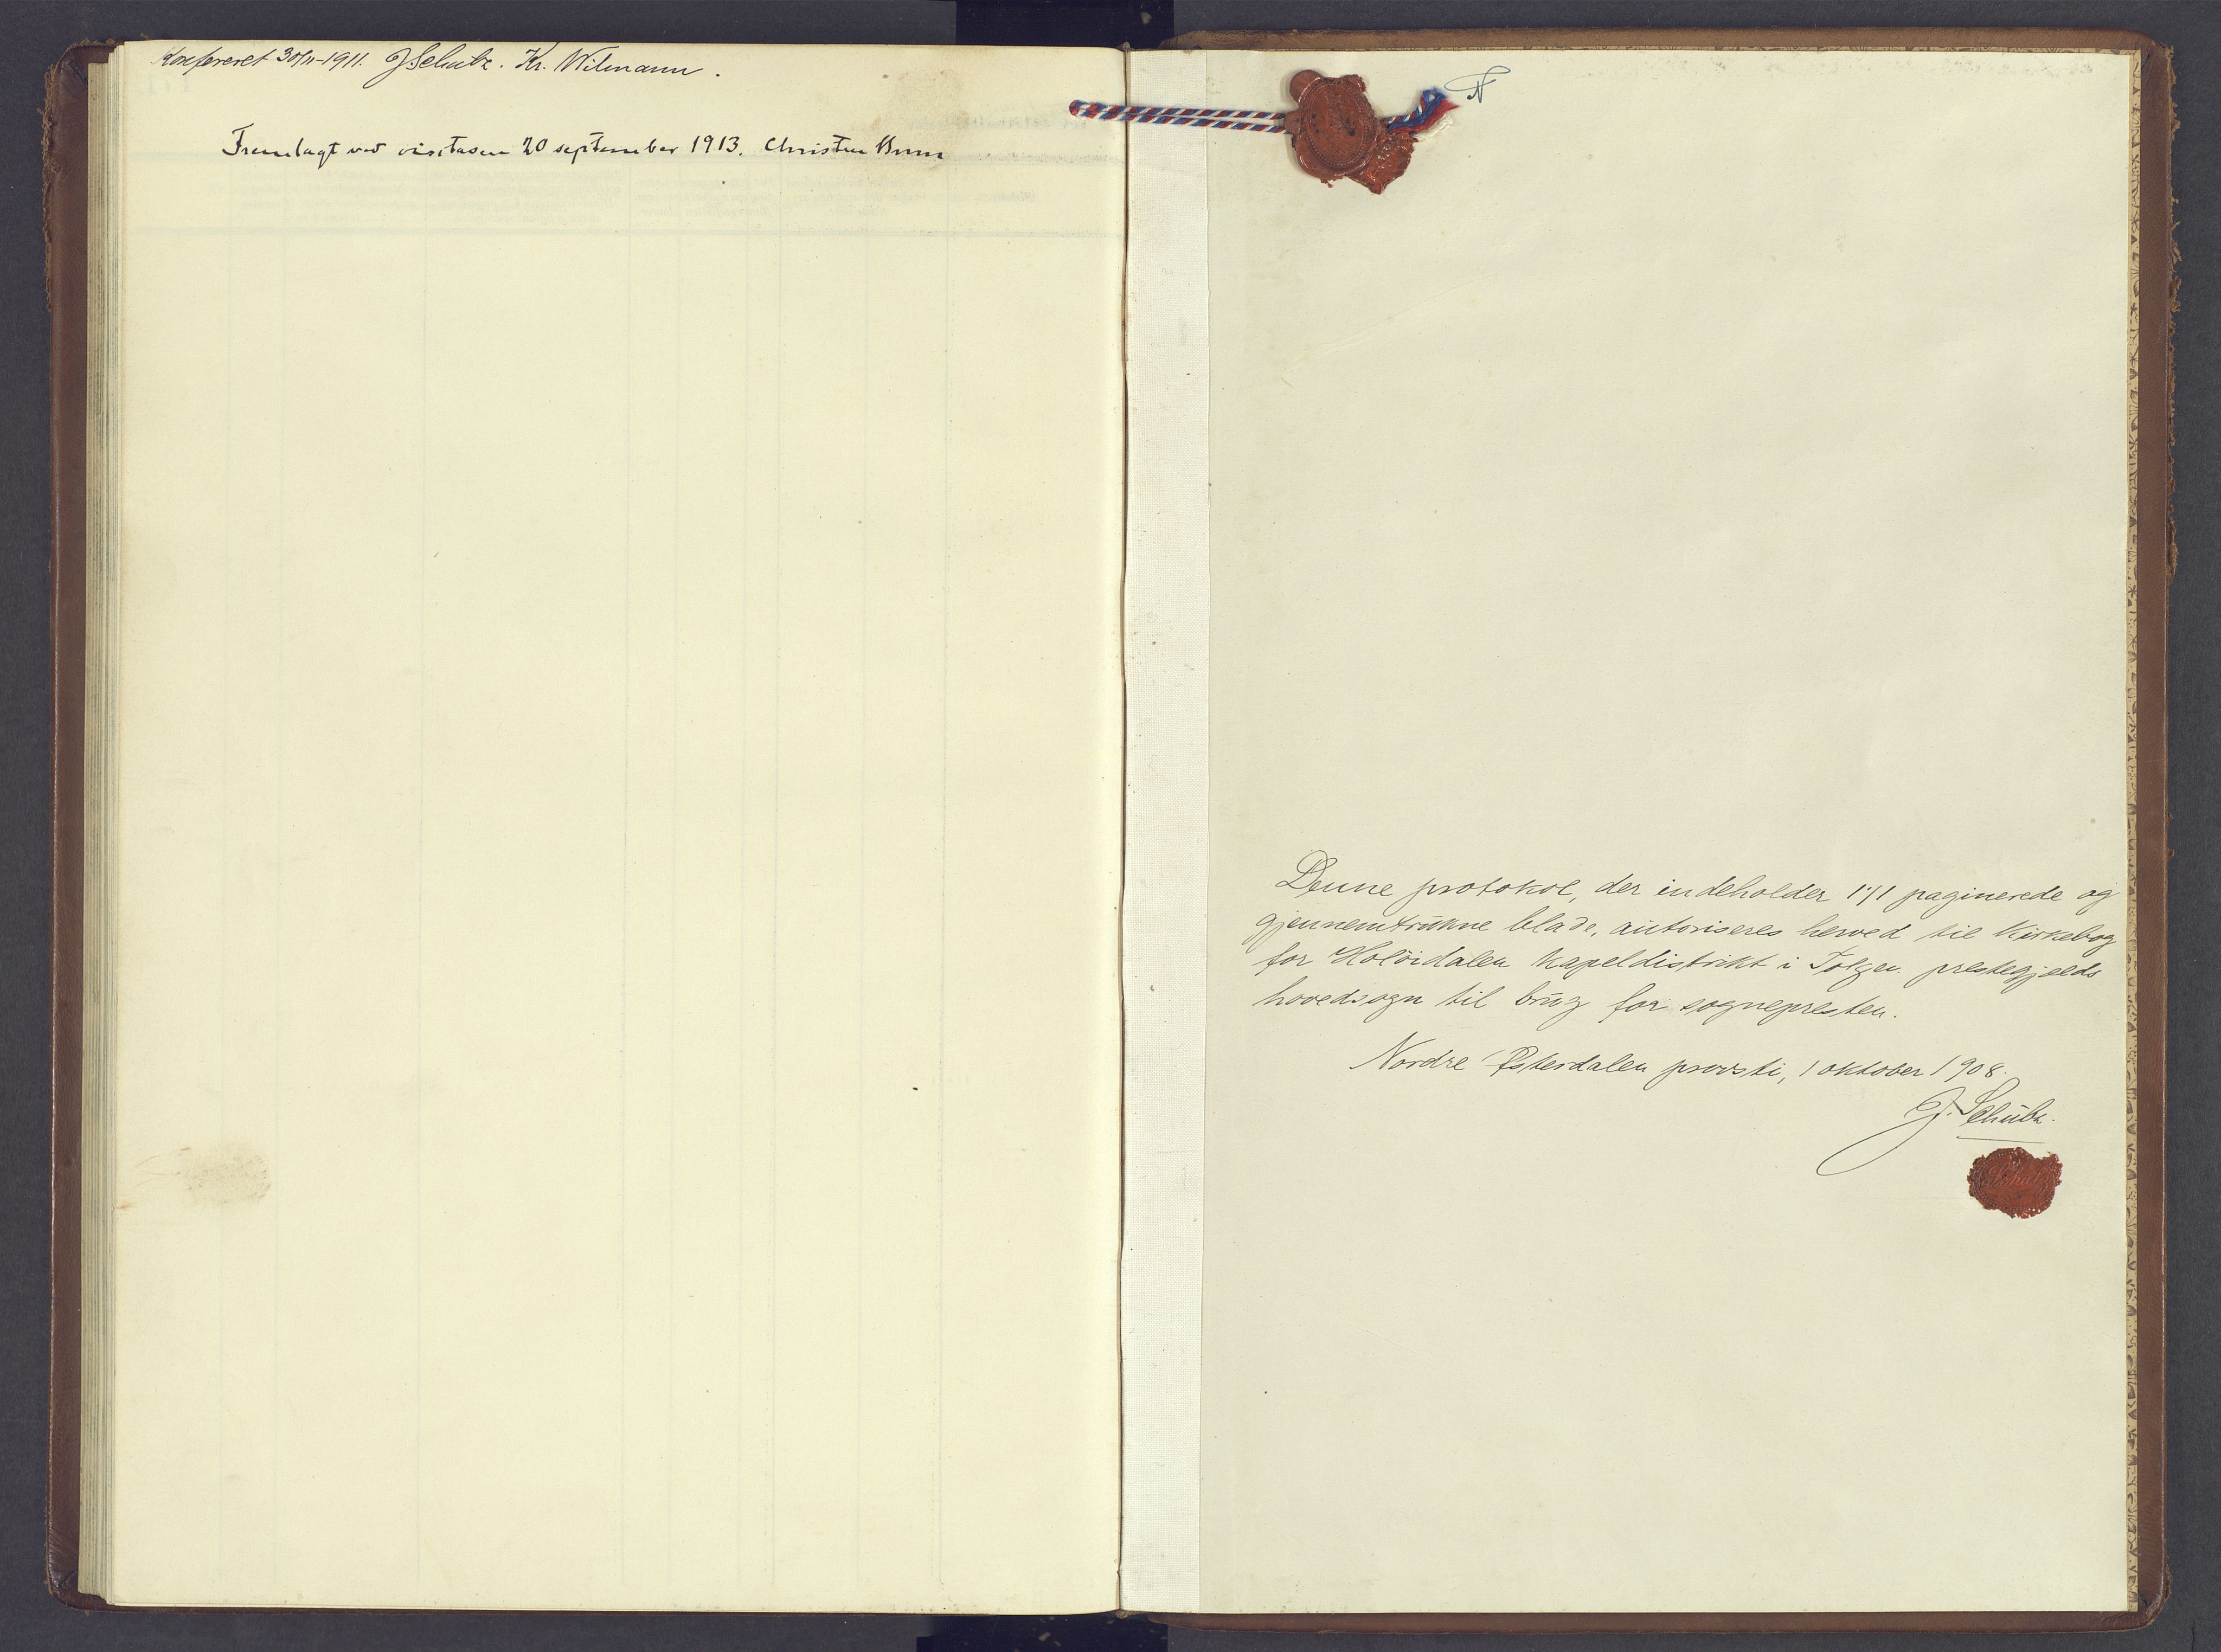 Konfereret 30/11-1911. J Schulz. Kr. Wilmann.
Fremlagt ved visitasen 20 september 1913. Christen Brun
Denne protokol, der indeholder 171 paginerede og
gjennemtrukne blade, autoriseres herved til Kirkebog
for Holöidalen kapeldistrikt i Tolgen prestegjælds
hovedsogn til brug for sognepresten.
Nordre Østerdalen provsti, 1 oktober 1908.
J. Schulz.